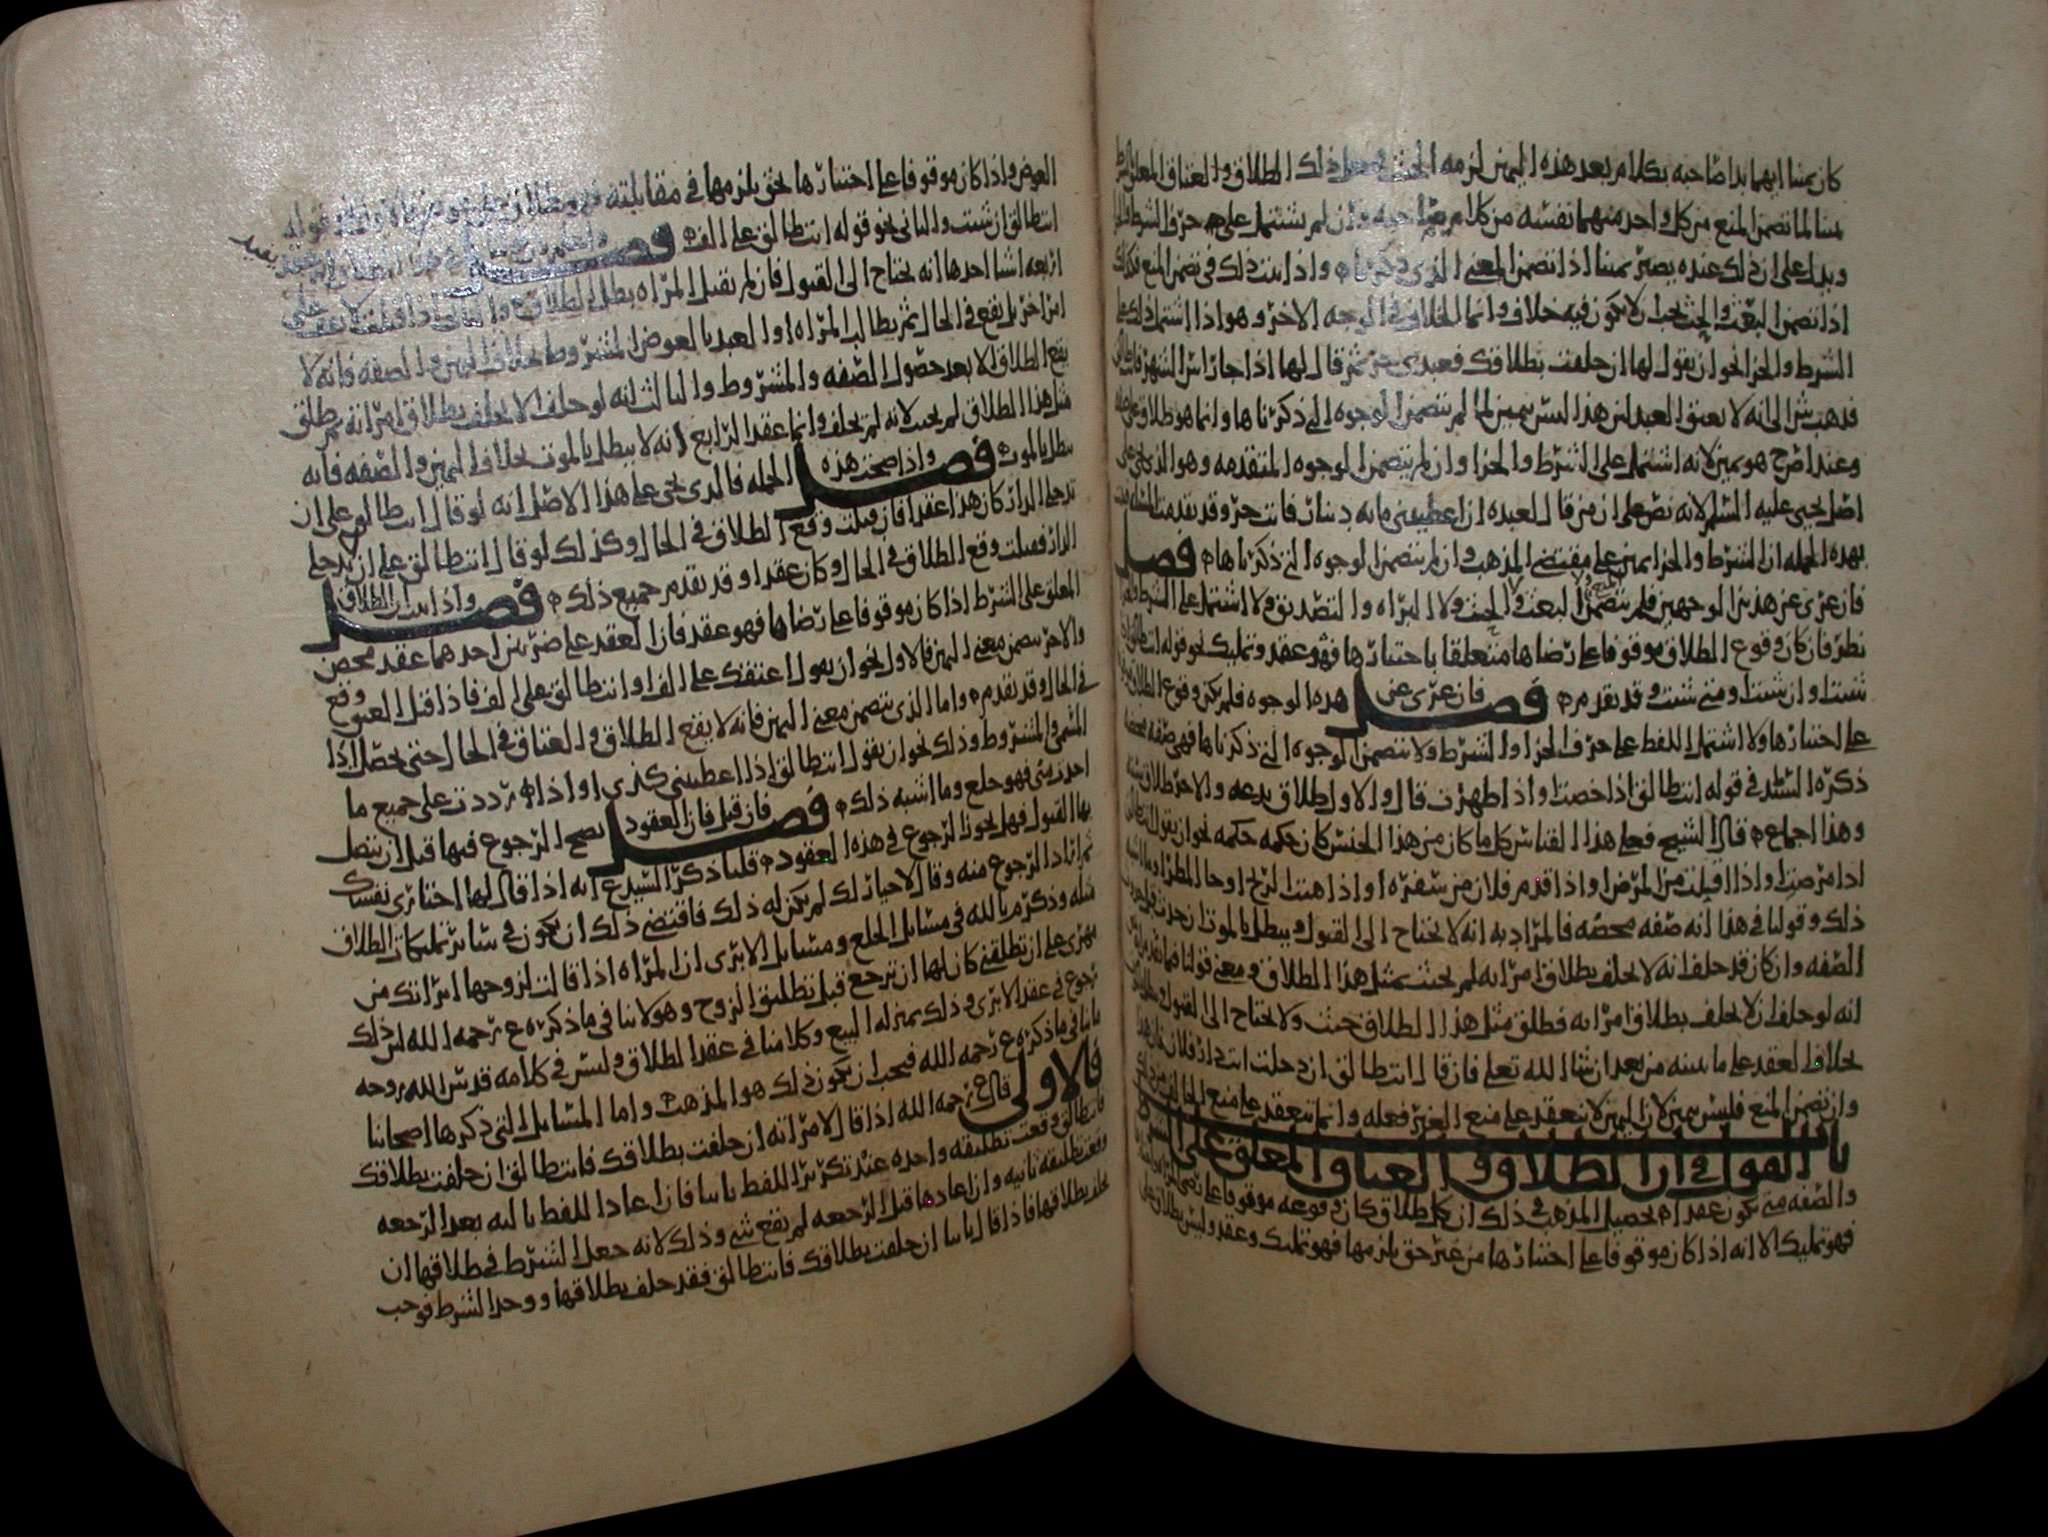 كان يمينا ايهما بدا صاحبه بكلام بعد هذه اليمين لزمه الحنث ذلك الطلاق والعتاق المعلق
يمينا لما تضمن المنع من كل واحد منهما نفسه من كلام صاحبه وان لم يشتمل على حرف الشرط
ويدل على ان ذلك عنده يصير يمينا اذا تضمن المعنى الذي ذكرناه واذا ثبت ذلك في تضمن المنع فكذلك
اذا تضمن البعث والحث يجب ان لا يكون فيه خلاف وانما الخلاف في الوجه الاخر وهو اذا اشتمل ذلك على
الشرط والجزا نحو ان يقول لها ان حلفت بطلاقك فعبدي حر ثم قال لها اذا جا راس الشهر فانت طالق
فذهب ش الى انه لا يعتق العبد لان هذا ليس بيمين لما لم يتضمن الوجوه التي ذكرناها وانما هو طلاق
وعند اصح هو يمين لانه اشتمل على الشرط والجزا وان لم يتضمن الوجوه المتقدمه وهو الذي يجي على
اصل يحيى عليه السلم لانه نص على ان من قال لعبده ان اعطيتني مائه دينار فانت حر وقد
بهذه الجمله ان الشرط والجزا يمين على مقتضى المذهب وان لم يتضمن الوجوه التي ذكرناها فصل
فان عري عن هذين الوجهين فلم يتضمن البعث والحث ولا البراه والتصديق ولا اشتمل على الشرط
نظر فان كان وقوع الطلاق موقوفا على رضاها متعلقا باختيارها فهو عقد وتمليك نحو قوله انت طالق
شئت او ان شئت او متى شئت وقد تقدم فصل فان عري عن هذه الوجوه فلم يكن وقوع الطلاق
على اختيارها ولا اشتمل اللفظ على حرف الجزا والشرط ولا يتضمن الوجوه التي ذكرناها فهي صفه محضه
ذكره السيد في قوله انت طالق اذا حضت او اذا طهرت قال والاول طلاق بدعه والاخر طلاق سنه
وهذا اجماع قال الشيخ فعلى هذا القياس كل ما كان من هذا الجنس كان حكمه حكمه نحو ان يقول
اذا مرضت او اذا اقبلت من المرض او اذا قدم فلان من سفره او اذا هبت الريح او جا المطر
ذلك وقولنا في هذا انه صفه محضه فالمراد به انه لا يحتاج الى القبول ويبطل بالموت ان حدث قبل
الصفه وان كان قد حلف انه لا يحلف بطلاق امراته لم يحنث بمثل هذا الطلاق ومعنى قولنا
انه لو حلف ان لا يحلف بطلاق امراته فطلق مثل هذا الطلاق حنث ولا يحتاج الى القبول
بخلاف العقد على ما نبينه من بعد ان شا الله تعلى فان قال انت طالق ان دخلت انت دار فلان
وان تضمن المنع فليس بيمين لان اليمين لا تنعقد على منع الغير فعله وانما تنعقد على منع الحالف
باب القول في ان الطلاق والعتاق المعلق على الشرط
والصفه متى يكون عقدا تحصيل المذهب في ذلك ان كل طلاق كان وقوعه موقوفا على
فهو تمليك الا انه اذا كان موقوفا على اختيارها من غير حق يلزمها فهو تمليك وعقد وليس بطلاق على
العوض واذا كان موقوفا على اختيارها بحق يلزمها في مقابلته فهو طلاق على عوض فالاول نحو قوله
انت طالق ان شئت والثاني نحو قوله انت طالق على الف فصل يفيد
اربعه اشيا احدها انه يحتاج الى القبول فان لم تقبل المراه بطل الطلاق والثاني اذا قبلت لا يقف على
امر اخر بل يقع في الحال ثم يطالب المراه او العبد بالعوض المشروط بخلاف اليمين والصفه فانه لا
يقع الطلاق الا بعد حصول الصفه والمشروط والثالث انه لو حلف الا يحلف بطلاق امراته ثم طلق
مثل هذا الطلاق لم يحنث لانه لم يحلف وانما عقد الرابع انه لا يبطل بالموت بخلاف اليمين والصفه فانه
يبطل بالموت فصل واذا صحت هذه الجمله فالذي يجي على هذا الاصل انه لو قال انت طالق على ان
تدخلي الدار كان هذا عقدا فان قبلت وقع الطلاق في الحال وكذلك لو قال انت طالق على ان تدخلي
الدار فقبلت وقع الطلاق في الحال وكان عقدا وقد تقدم جميع ذلك فصل واذا ثبت ان الطلاق
المعلق على الشرط اذا كان موقوفا على رضاها فهو عقد فان العقد على ضربين احدهما عقد محض
والاخر يتضمن معنى اليمين فالاول نحو ان يقول اعتقتك على الف او انت طالق على الف فاذا قبل العتق وقع
في الحال وقد تقدم واما الذي يتضمن معنى اليمين فانه لا يقع الطلاق والعتاق في الحال حتى يحصل اذا
المسمى والمشروط وذلك نحو ان يقول انت طالق اذا اعطيتني كذي او اذا رددت على جميع ما
اخذت مني فهو خلع وما اشبه ذلك فصل فان قيل فان العقود يصح الرجوع فيها قبل ان يتصل
بها القبول فهل يجوز الرجوع في هذه العقود قلنا ذكر السيد ع انه اذا قال لها اختاري نفسك
ثم اراد الرجوع منه وقال لا خيار لك لم يكن له ذلك فاقتضى ذلك ان يكون في سائر تمليكات الطلاق
مثله وذكر م بالله في مسائل الخلع ومسائل الابرى ان المراه اذا قالت لزوجها ابراتك من
مهري على ان تطلقني كان لها ان ترجع قبل تطليق الزوج وهو لا ينافي ما ذكره ع رحمه الله لان ذلك
رجوع في عقد الابرى وذلك بمنزله البيع وكلامنا في عقد الطلاق وليس في كلامه قدس الله روحه
ما ينافي ما ذكره ع رحمه الله فيجب ان يكون ذلك هو المذهب واما المسائل التي ذكرها اصحابنا
فالاولى قال ع رحمه الله اذا قال لامراته ان حلفت بطلاقك فانت طالق ان حلفت بطلاقك
فانت طالق وقعت تطليقه واحده عند تكرير اللفظ ثانيا فان اعاد اللفظ ثالثه بعد الرجعه
وقعت تطليقه ثانيه وان اعادها قبل الرجعه لم يقع شي وذلك لانه جعل الشرط في طلاقها ان
يحلف بطلاقها فاذا قال ثانيا ان حلفت بطلاقك فانت طالق فقد حلف بطلاقها ووجد الشرط فوجب